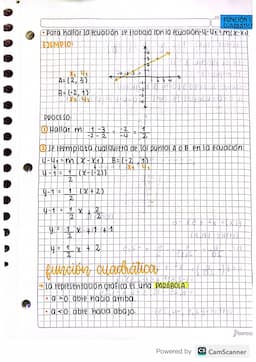 FUNCIÓN
CUADRÁTICA
• Para hallar la ecuación se trabaja con la ecuación y-y₁ = m(x-x₁)
EJEMPLO:
x₁ y₁
A=(2, 3)
B=(-2, 1)
x₂ y₂
PROCESO:
① Hallar m: 1-3 / -2-2 = -2 / -4 = 1/2
② Se reemplaza cualquiera de los puntos A o B en la ecuación:
y-y₁ = m (x-x₁) B=(-2, 1)
x₁ y₁
y-1 = 1/2 (x-(-2))
y-1 = 1/2 (x+2)
y-1 = 1/2 x + 2/2
y = 1/2 x + 1 + 1
y = 1/2 x + 2
función cuadrática
• La representación gráfica es una PARÁBOLA.
• a>0 abre hacia arriba.
• a<0 abre hacia abajo.
Powered by CS CamScanner